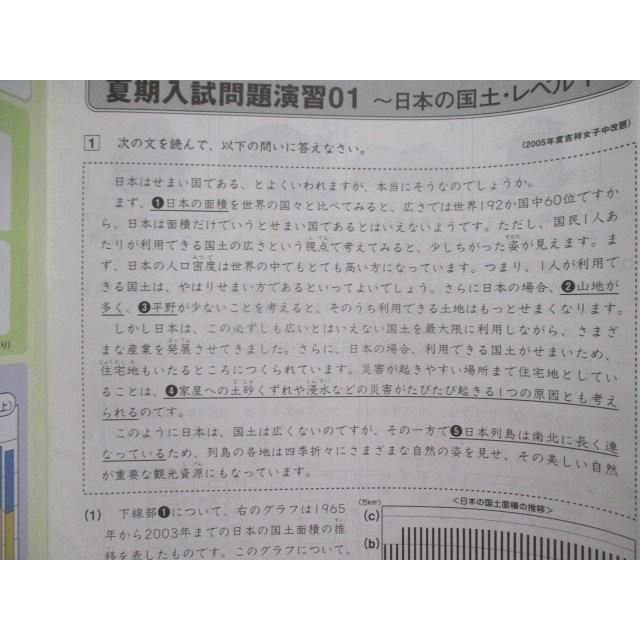 夏期入試問題演習01 ～日本の国土・レベル
(2005年度吉祥女子中改題)
1 次の文を読んで、以下の問いに答えなさい。
日本はせまい国である、とよくいわれますが、本当にそうなのでしょうか。
まず、❶日本の面積を世界の国々と比べてみると、広さでは世界192か国中60位ですか
ら、日本は面積だけでいうとせまい国であるとはいえないようです。ただし、国民1人あ
たりが利用できる国土の広さという視点で考えてみると、少しちがった姿が見えます。ま
ず、日本の人口密度は世界の中でもとても高い方になっています。つまり、1人が利用で
きる国土は、やはりせまい方であるといってよいでしょう。さらに日本の場合、❷山地が
多く、❸平野が少ないことを考えると、そのうち利用できる土地はもっとせまくなります。
しかし日本は、この必ずしも広いとはいえない国土を最大限に利用しながら、さまざ
まな産業を発展させてきました。さらに、日本の場合、利用できる国土がせまいため、
住宅地もいたるところにつくられています。災害が起きやすい場所まで住宅地としてい
ることは、❹家屋への土砂くずれや浸水などの災害がたびたび起きる1つの原因とも考え
られるのです。
このように日本は、国土は広くないのですが、その一方で❺日本列島は南北に長く連
なっているため、列島の各地は四季折々にさまざまな自然の姿を見せ、その美しい自然
が重要な観光資源にもなっています。
(1) 下線部❶について、右のグラフは1965
年から2003年までの日本の国土面積の推
移を表したものです。このグラフについて、
(万km²)
<日本の国土面積の推移>
(c)
(b)
り)
上)